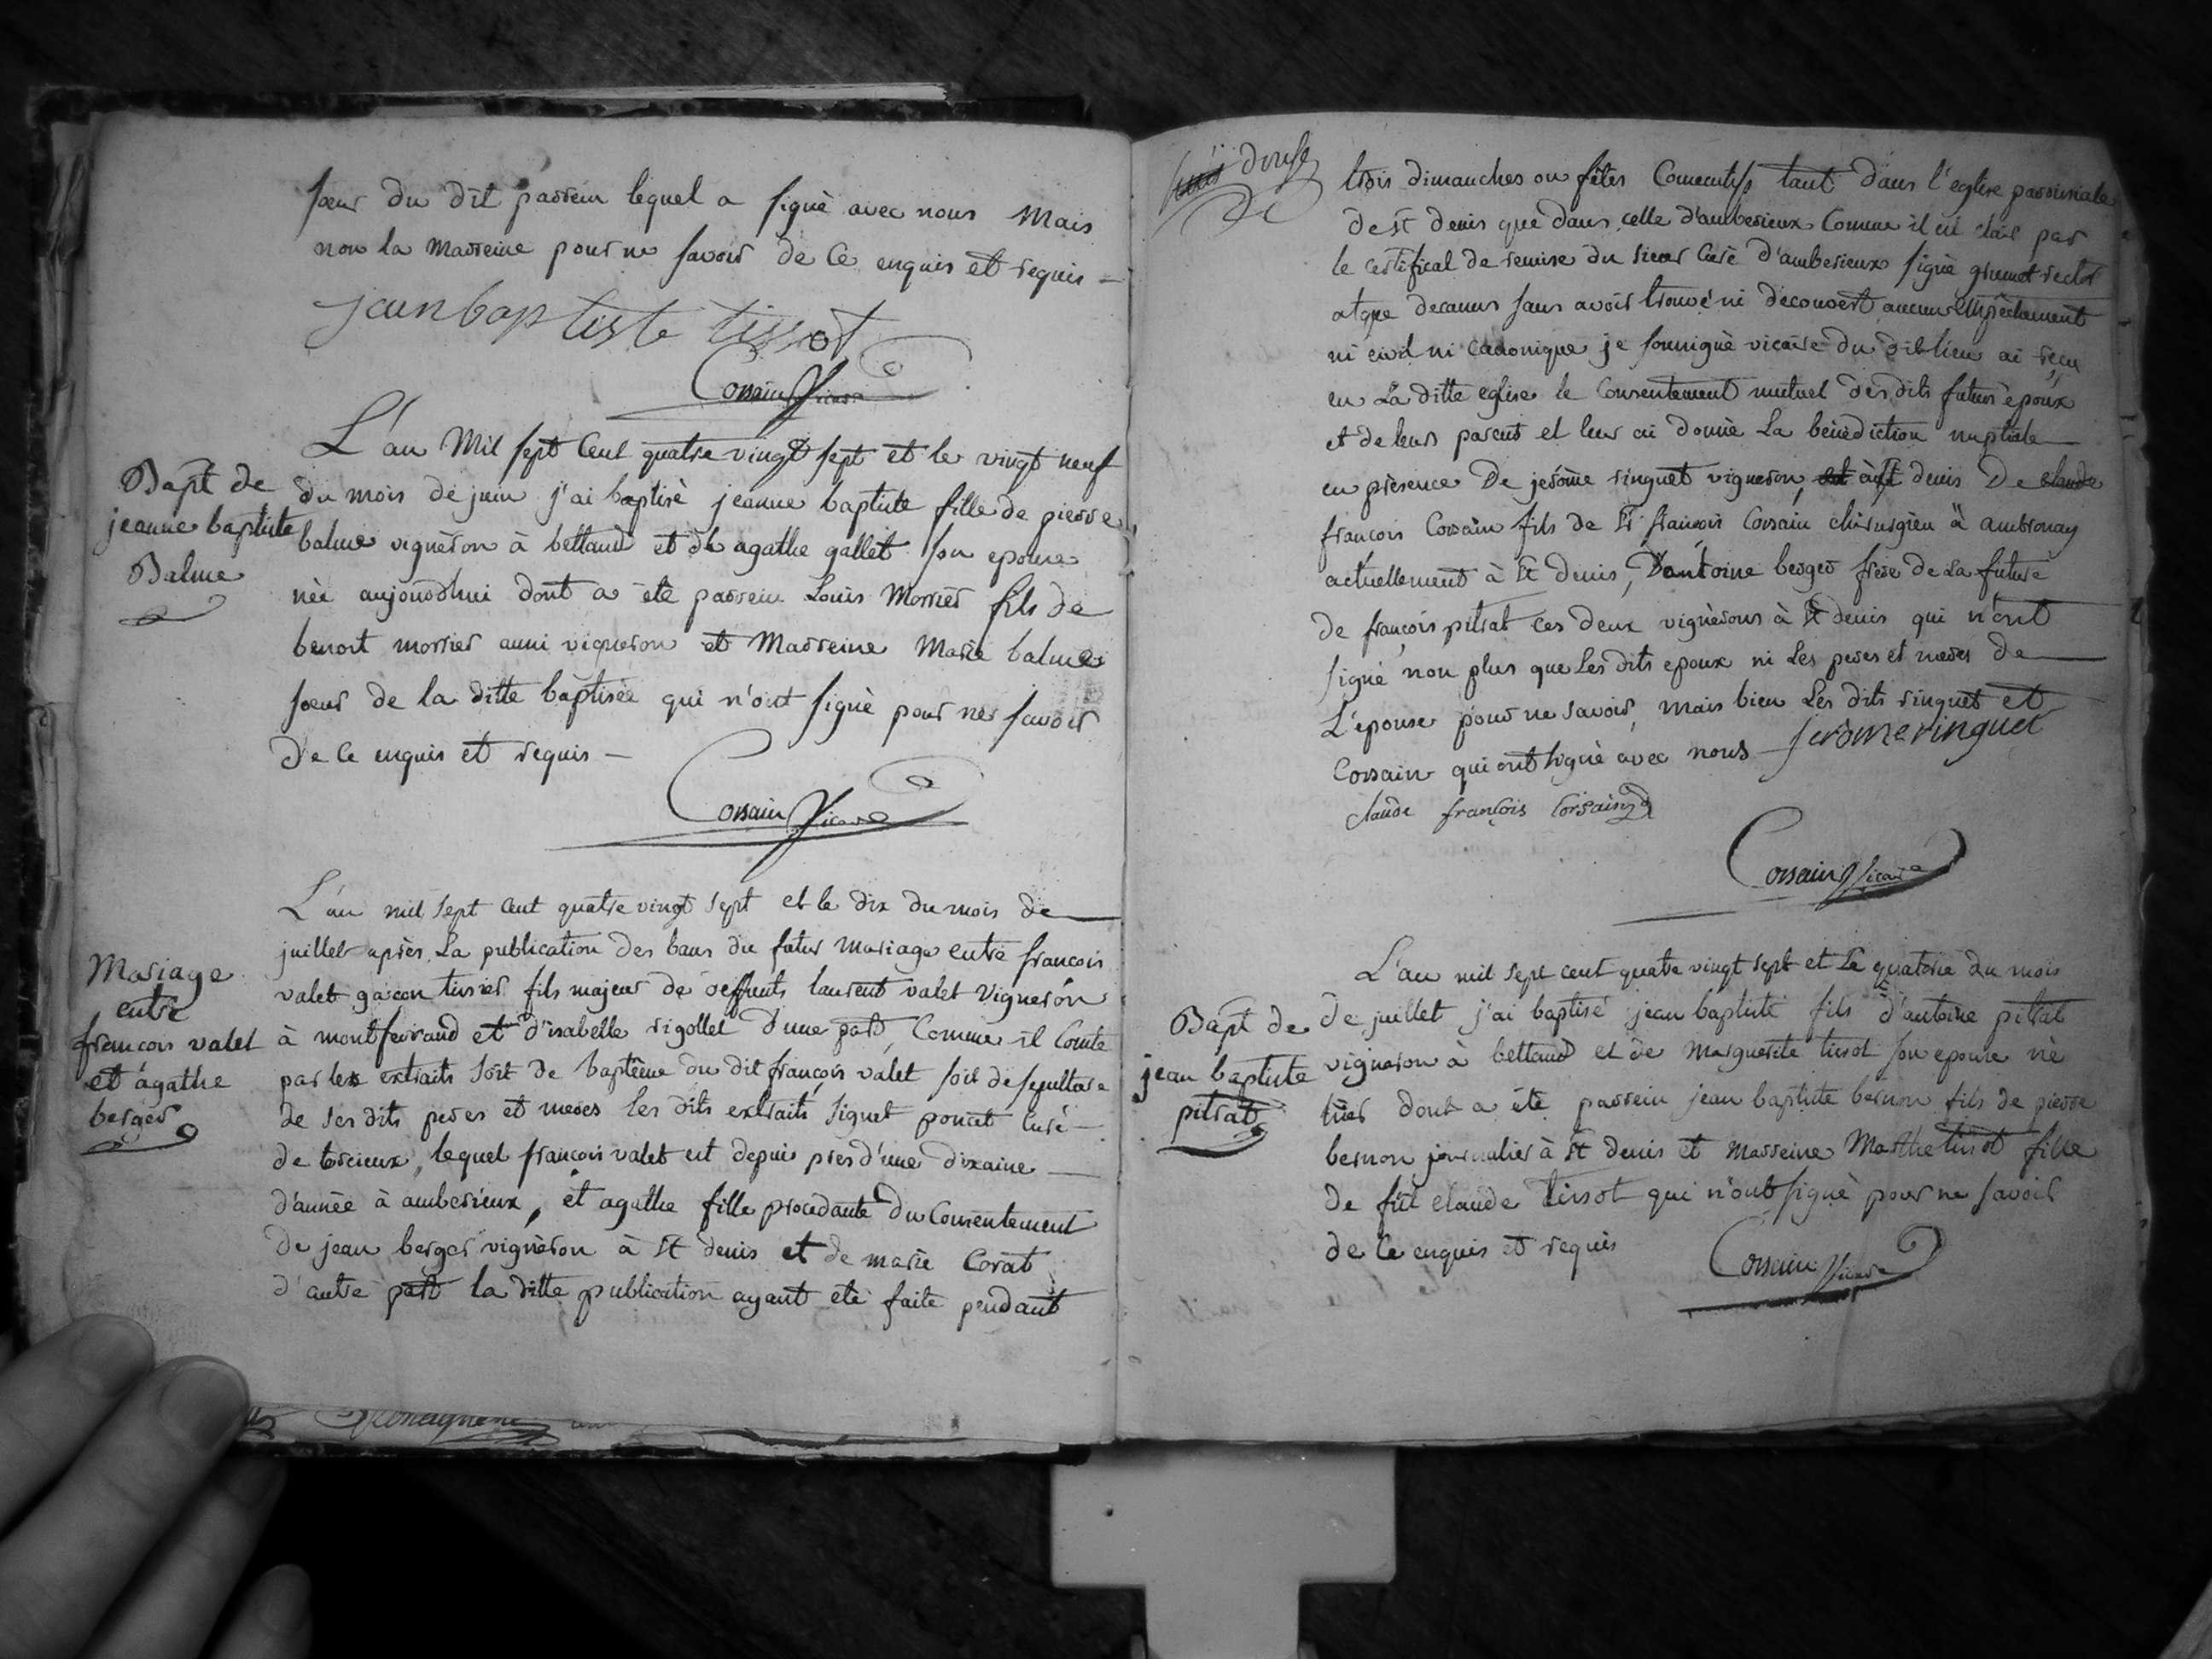 sœur du dit parrein lequel a signè avec nous Mais
non la Marreine pour ne savoir de ce enquis et requis
jean baptiste tissot
Corsain Vicaire
Bapt de
jeanne baptiste
Balme
L'an Mil sept cent quatre vingt sept et le vingt neuf
du mois de juin j'ai baptisè jeanne baptiste fille de pierre
balme vignèron à bettand et de agathe gallet son epouse
nèe aujourdhui dont a ètè parrein Louis Morrier fils de
benoit morrier aussi vigneron et Marreine Marie balme
sœur de la ditte baptisèe qui n'ont signè pour ne savoir
de ce enquis et requis
Corsain Vicaire
Mariage
entre
francois valet
et agathe
berger
L'an mil sept cent quatre vingt sept et le dix du mois de
juillet après La publication des bans du futur Mariage entre francois
valet garcon tissier fils majeur de deffunts laurent valet Vigneron
à montferrand et d'isabelle rigollet d'une part, Comme il Conste
par les extraits soit de baptême du dit francois valet soit de sepulture
de ses dits peres et meres les dits extraits signet poncet curé
de torcieux, lequel francois valet est depuis près d'une dixaine
d'annèe à amberieux, et agathe fille procèdante du Consentement
de jean berger vignèron à St denis et de marie Corat
d'autre part la ditte publication ayant etè faite pendant
douse
trois dimanches ou fêtes Consecutifs tant dans l'eglise parroissiale
de St denis que dans celle d'amberieux Comme il est clair par
le certificat de remise du sieur Curè d'amberieux signè grumet rector
atque decanus sans avoir trouvè ni dècouvert aucun empêchement
ni civil ni canonique je soussignè vicaire du dit lieu ai reçu
en La ditte eglise le Consentement mutuel des dits futurs èpoux
et de leurs parents et leur ai donnè La bènèdiction nuptiale
en prèsence De jerôme ringuet vigneron à St denis De claude
francois Corsain fils de Sr francois Corsain chirurgien à ambronay
actuellement à St denis, D'antoine berger frere de La future
de francois pitrat ces deux vignèrons à St denis qui n'ont
signè non plus que Les dits epoux ni Les peres et meres de
L'epouse pour ne savoir, mais bien Les dits ringuet et
Corsain qui ont signè avec nous jerome ringuet
claude françois Corsain
Corsain Vicaire
Bapt de
jean baptiste
pitrat
L'an mil sept cent quatre vingt sept et Le quatorze du mois
de juillet j'ai baptisé jean baptiste fils d'antoine pitrat
vigneron à bettand et de Marguerite tissot son epouse nè
hier dont a ètè parrein jean baptiste bernon fils de pierre
bernon journalier à St denis et Marreine Marthe tissot fille
de fût claude tissot qui n'ont signè pour ne savoir
de ce enquis et requis
Corsain Vicaire